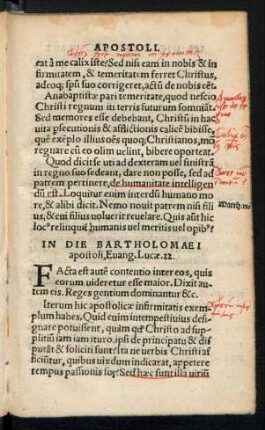 APOSTOLI.
eat à me calix iste? Sed nisi eam in nobis & in
firmitatem, & temeritatem ferret Christus,
adeoq; spũ suo corrigeret, actũ de nobis eẽt.
Anabaptistæ pari temeritate, quod nescio
Christi regnum in terris futurum somniãt.
Sed memores esse debebant, Christũ in hac
vita psecutionis & afflictionis calicē bibisse,
quē exēplo illius oēs quoq; Christianos, an
regnare cũ eo olim velint, bibere oporteat.
Quod dicit se uti ad dexteram uel sinistrã
in regno suo sedeant, dare non posse, sed ad
patrem pertinere, de humanitate intelligen
dũ est. Loquitur enim interdũ humano mo
re, & alibi dicit. Nemo nouit patrem nisi fili
us, & cui filius voluerit reuelare. Quis aũt hic
loc9 relinquit humanis uel meritis uel opib9?
Matth.
IN DIE BARTHOLOMAEI
apostoli, Euang. Lucæ. 22.
FActa est autē contentio inter eos, quis
eorum uideretur esse maior. Dixit au-
tem eis. Reges gentium dominantur &c.
Iterum hic apostolicæ infirmitatis exem-
plum habes. Quid enim intempestiuius desi-
gnare potuissent, quàm qđ Christo ad suppli
tiũ iam iam ituro, ipsi de principatu & di
sputãt & soliciti sunt? Ista ne verbis Christi af
ficiũtur, quibus uixdum indicarat, appetere
tempus passionis suę? Sed hæc sunt illa uitiũ